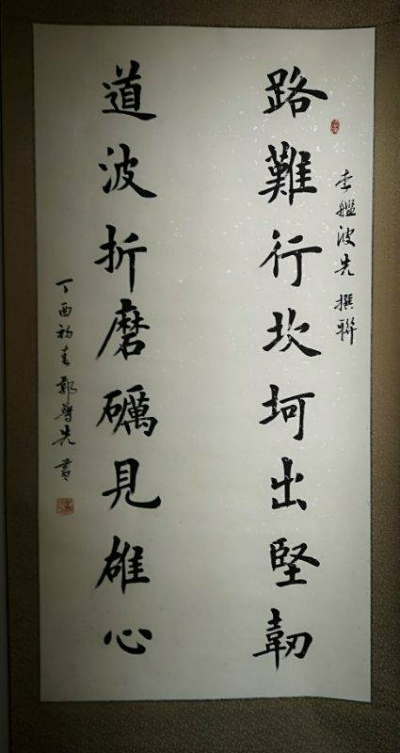 李艦波先 撰聯
路難行坎坷出堅韌
道波折磨礪見雄心
丁酉初春 先書